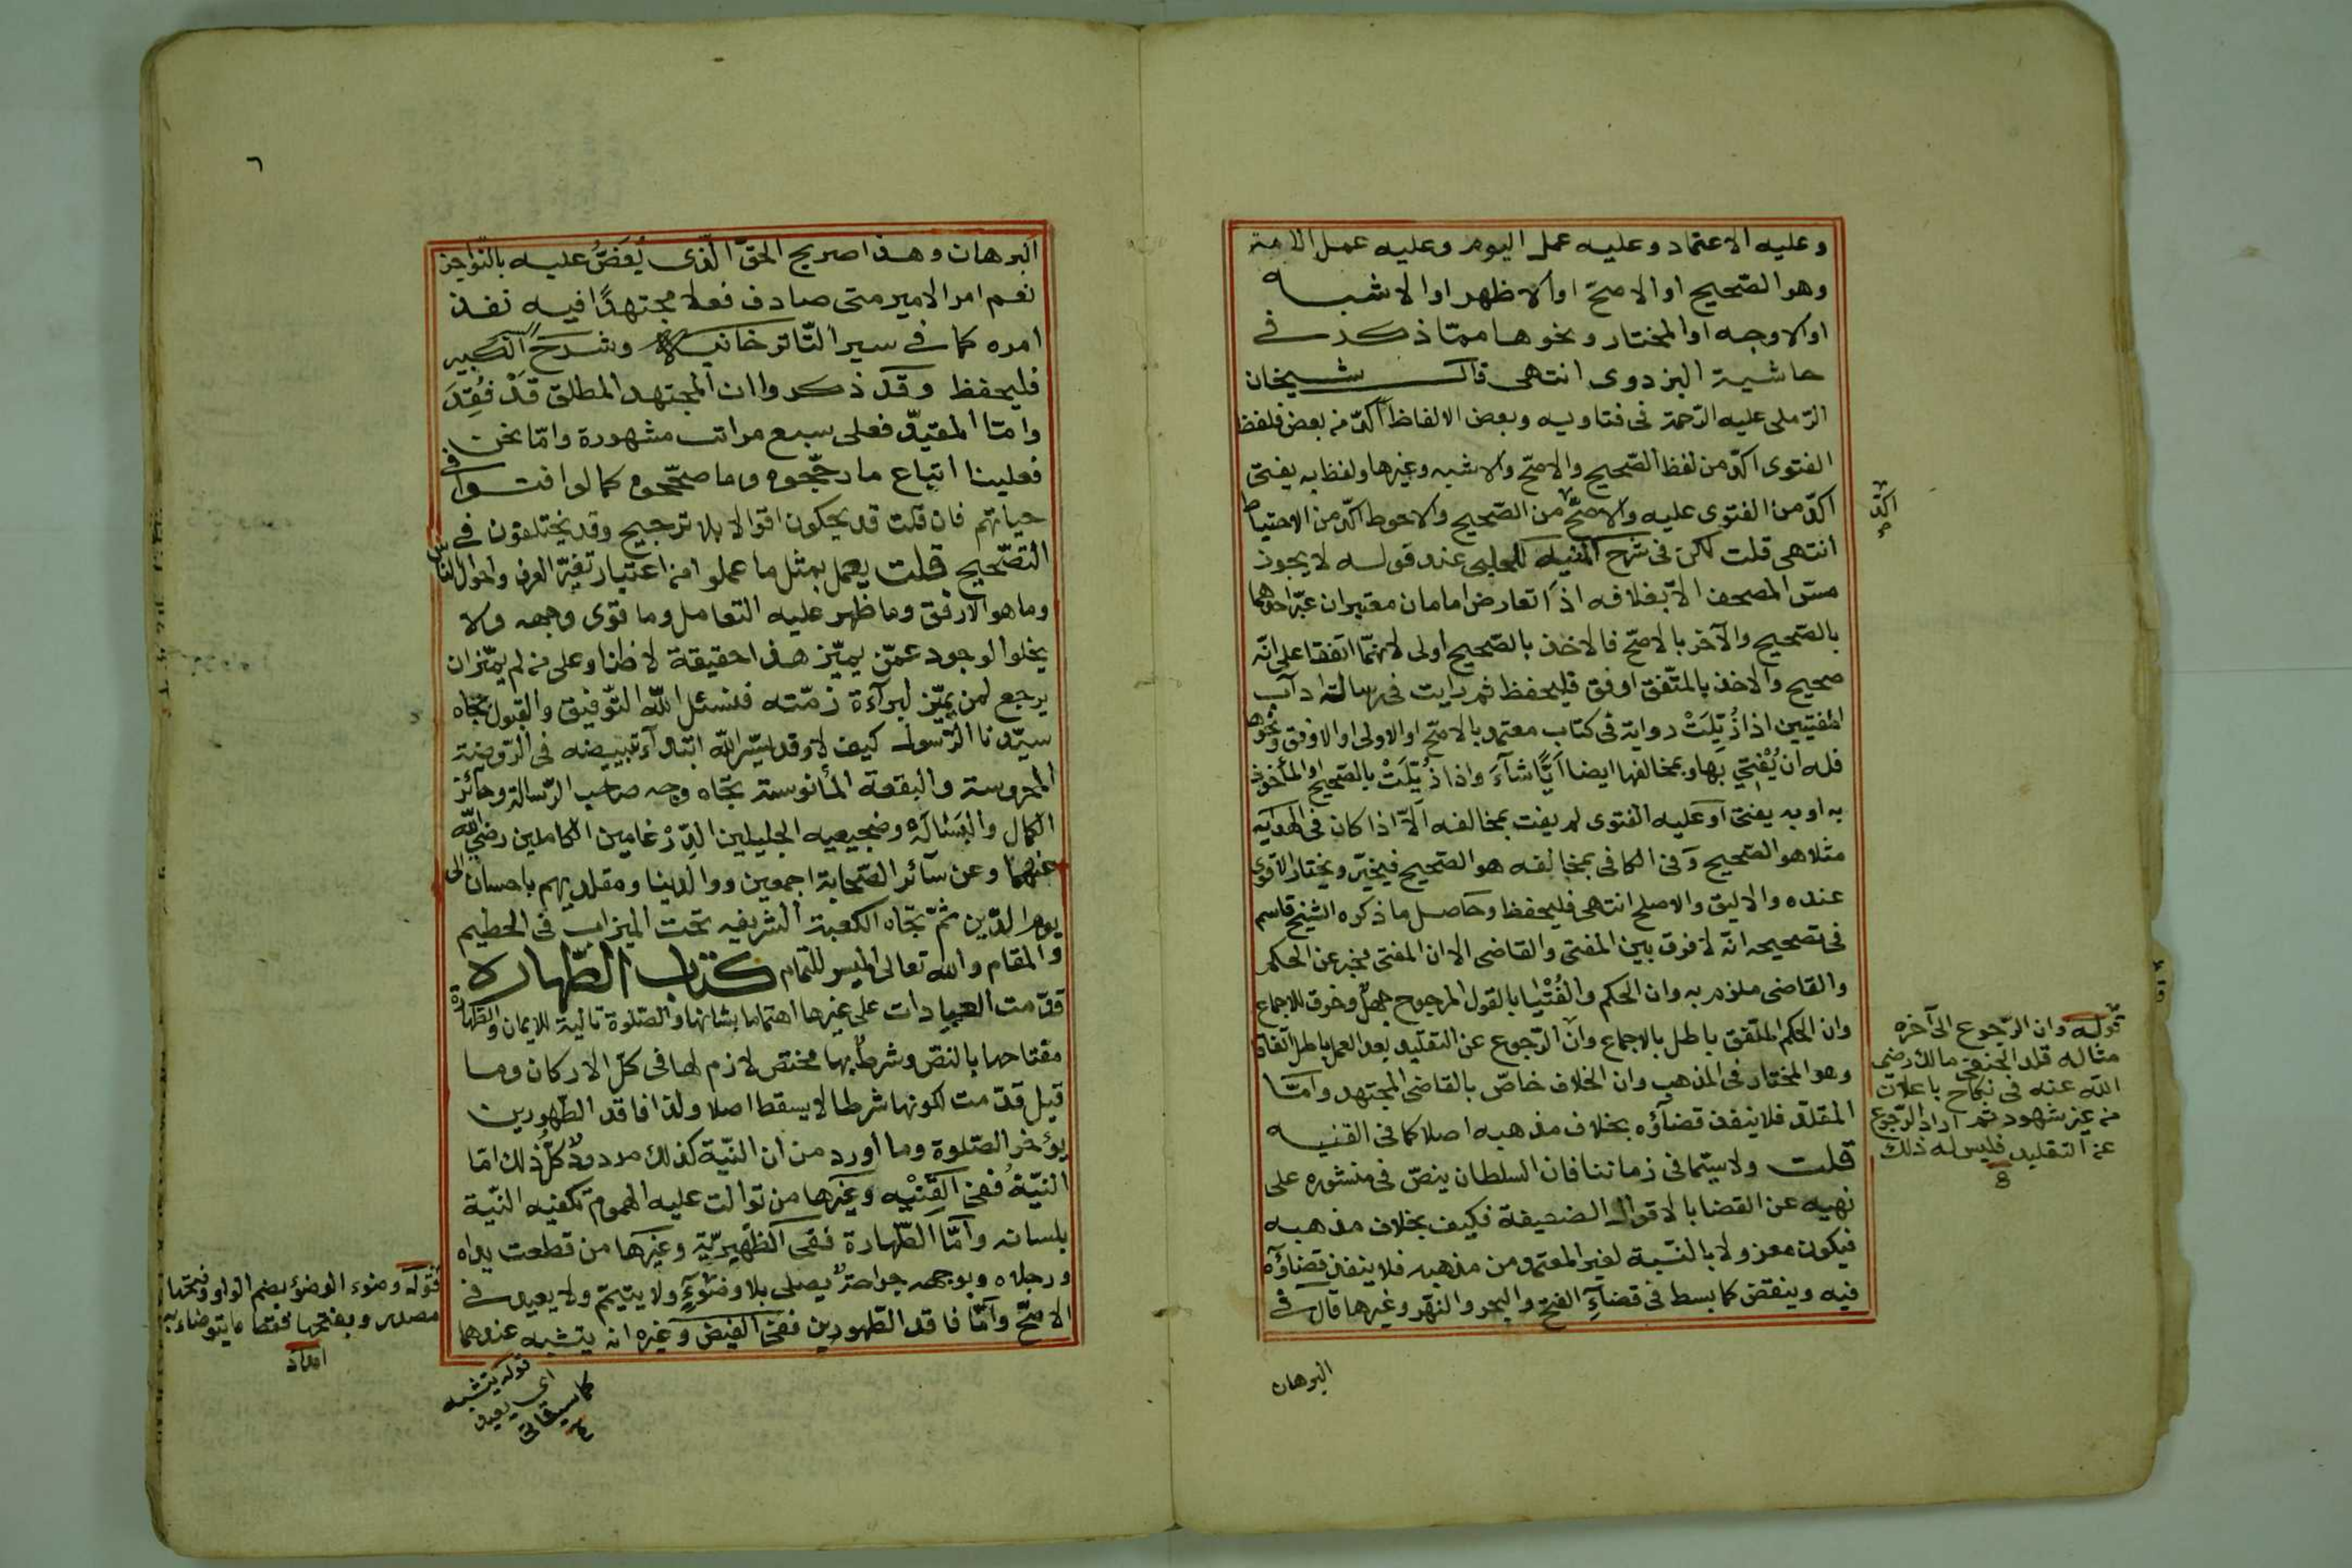 وعليه الاعتماد وعليه عمل اليوم وعليه عمل الامة
وهو الصحيح او الاصح او الاظهر او الاشبه
او الاوجه او المختار ونحوها مما ذكر في
حاشية البزدوى انتهى قال شيخان
الرملى عليه الرحمة فى فتاويه وبعض الالفاظ آكد من بعض فلفظ
الفتوى اكد من لفظ الصحيح والاصح والاشبه وغيرها ولفظ به يفتى
اكد من الفتوى عليه والاصح من الصحيح والاحوط اكد من الاحتياط
اكد
صح
انتهى قلت لكن فى شرح المنيه للحلبى عند قوله لا يجوز
مس المصحف الا بغلافه اذا تعارض امامان معتبران عبر احدهما
بالصحيح والآخر بالاصح فالاخذ بالصحيح اولى لانهما اتفقا على انه
صحيح والاخذ بالمتفق اوفق فليحفظ ثم رايت فى رسالة اداب
المفتيين اذا ذُيِّلَتْ رواية فى كتاب معتمد بالاصح او الاولى او الاوفق ونحوها
فله ان يُفْتِيَ بها وبمخالفها ايضا ايًّا شاءَ واذا ذُيِّلَتْ بالصحيح او المأخوذ
به او به يفتى او عليه الفتوى لم يفت بمخالفه الا اذا كان فى الهدايه
مثلا هو الصحيح وفى الكافى بمخالفه هو الصحيح فيخير ويختار الاقوى
عنده والاليق والاصلح انتهى فليحفظ وحاصل ما ذكره الشيخ قاسم
فى تصحيحه انه لا فرق بين المفتى والقاضى الا ان المفتى مخبر عن الحكم
والقاضى ملزم به وان الحكم والفُتْيا بالقول المرجوح جهل وخرق للاجماع
وان الحكم الملفق باطل بالاجماع وان الرجوع عن التقليد بعد العمل باطل اتفاقا
وهو المختار فى المذهب وان الخلاف خاص بالقاضى المجتهد واما
المقلد فلا ينفذ قضاؤه بخلاف مذهبه اصلا كما فى القنيه
قلت ولا سيما فى زماننا فان السلطان ينص فى منشوره على
نهيه عن القضا بالاقوال الضعيفة فكيف بخلاف مذهبه
فيكون معزولا بالنسبة لغير المعتمد من مذهبه فلا ينفذ قضاؤه
فيه وينقض كما بسط فى قضاءِ الفتح والبحر والنهر وغيرها قال فى
البرهان
قوله وان الرجوع الى آخره
مثاله قلد الحنفى مالك رضى
الله عنه فى نكاح باعلان
من غير شهود ثم اراد الرجوع
عن التقليد فليس له ذلك
٦
البرهان وهذا صريح الحق الذى يُعَضُّ عليه بالنواجذ
نعم امر الامير متى صادف فعلا مجتهدًا فيه نفذ
امره كما فى سير التاترخانيه وشرح الكبير
فليحفظ وقد ذكروا ان المجتهد المطلق قَدْ فُقِدَ
واما المقيد فعلى سبع مراتب مشهورة واما نحن
فعلينا اتباع ما رجحوه وما صححوه كما لو افتوا فى
حياتهم فان قلت قد يحكون اقوالا بلا ترجيح وقد يختلفون فى
التصحيح قلت يعمل بمثل ما عملوا من اعتبار تغير العرف واحوال الناس
وما هو الارفق وما ظهر عليه التعامل وما قوى وجهه ولا
يخلو الوجود عمن يميز هذا حقيقة لا ظنا وعلى من لم يميز ان
يرجع لمن يميز لبراءة ذمته فنسئل الله التوفيق والقبول بجاه
سيدنا الرسول كيف لا وقد يسر الله ابتداء تبييضه فى الروضة
المحروسة والبقعة المأنوسة تجاه وجه صاحب الرسالة وحائز
الكمال والبَسَالَةِ وضجيعيه الجليلين الضرغامين الكاملين رضى الله
عنهما وعن سآئر الصحابة اجمعين ووالدينا ومقلديهم باحسان الى
يوم الدين ثم تجاه الكعبة الشريفه تحت الميزاب فى الحطيم
والمقام والله تعالى الميسر للتمام كتاب الطهاره
قدمت العبادات على غيرها اهتماما بشانها والصلوة تالية للايمان والطهارة
مفتاحها بالنص وشرط بها مختص لازم لها فى كل الاركان وما
قيل قدمت لكونها شرطا لا يسقط اصلا ولذا فاقد الطهورين
يؤخر الصلوة وما اورد من ان النية كذلك مردود كل ذلك اما
النية ففى القنيه وغيرها من توالت عليه الهموم تكفيه النية
بلسانه واما الطهارة ففى الظهيرية وغيرها من قطعت يداه
ورجلاه وبوجهه جراحة يصلى بلا وضوءٍ ولا يتيمم ولا يعيد فى
الاصح واما فاقد الطهورين ففى الفيض وغيره انه يتشبه عندهما
قوله وضوء الوضؤ بضم الواو وفتحها
مصدر وبفتحها فقط ما يتوضاء به
امداد
قوله يتشبه
اى يعيد
كما سيأتى